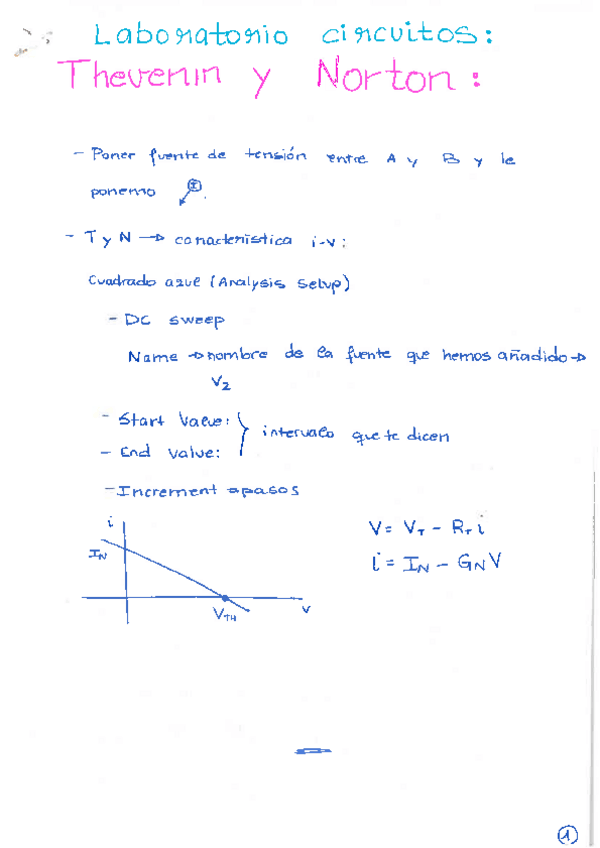 Laboratorio circuitos:
Thevenin y Norton:
- Poner fuente de tensión entre A y B y le
ponemo I.
- T y N → característica i-v:
Cuadrado azul (Analysis Setup)
- DC sweep
Name → nombre de la fuente que hemos añadido →
V₂
- Start Value:
- End value:
intervalo que te dicen
- Increment → pasos
i
I_N
V_TH
v
V = V_T - R_T i
i = I_N - G_N V
1